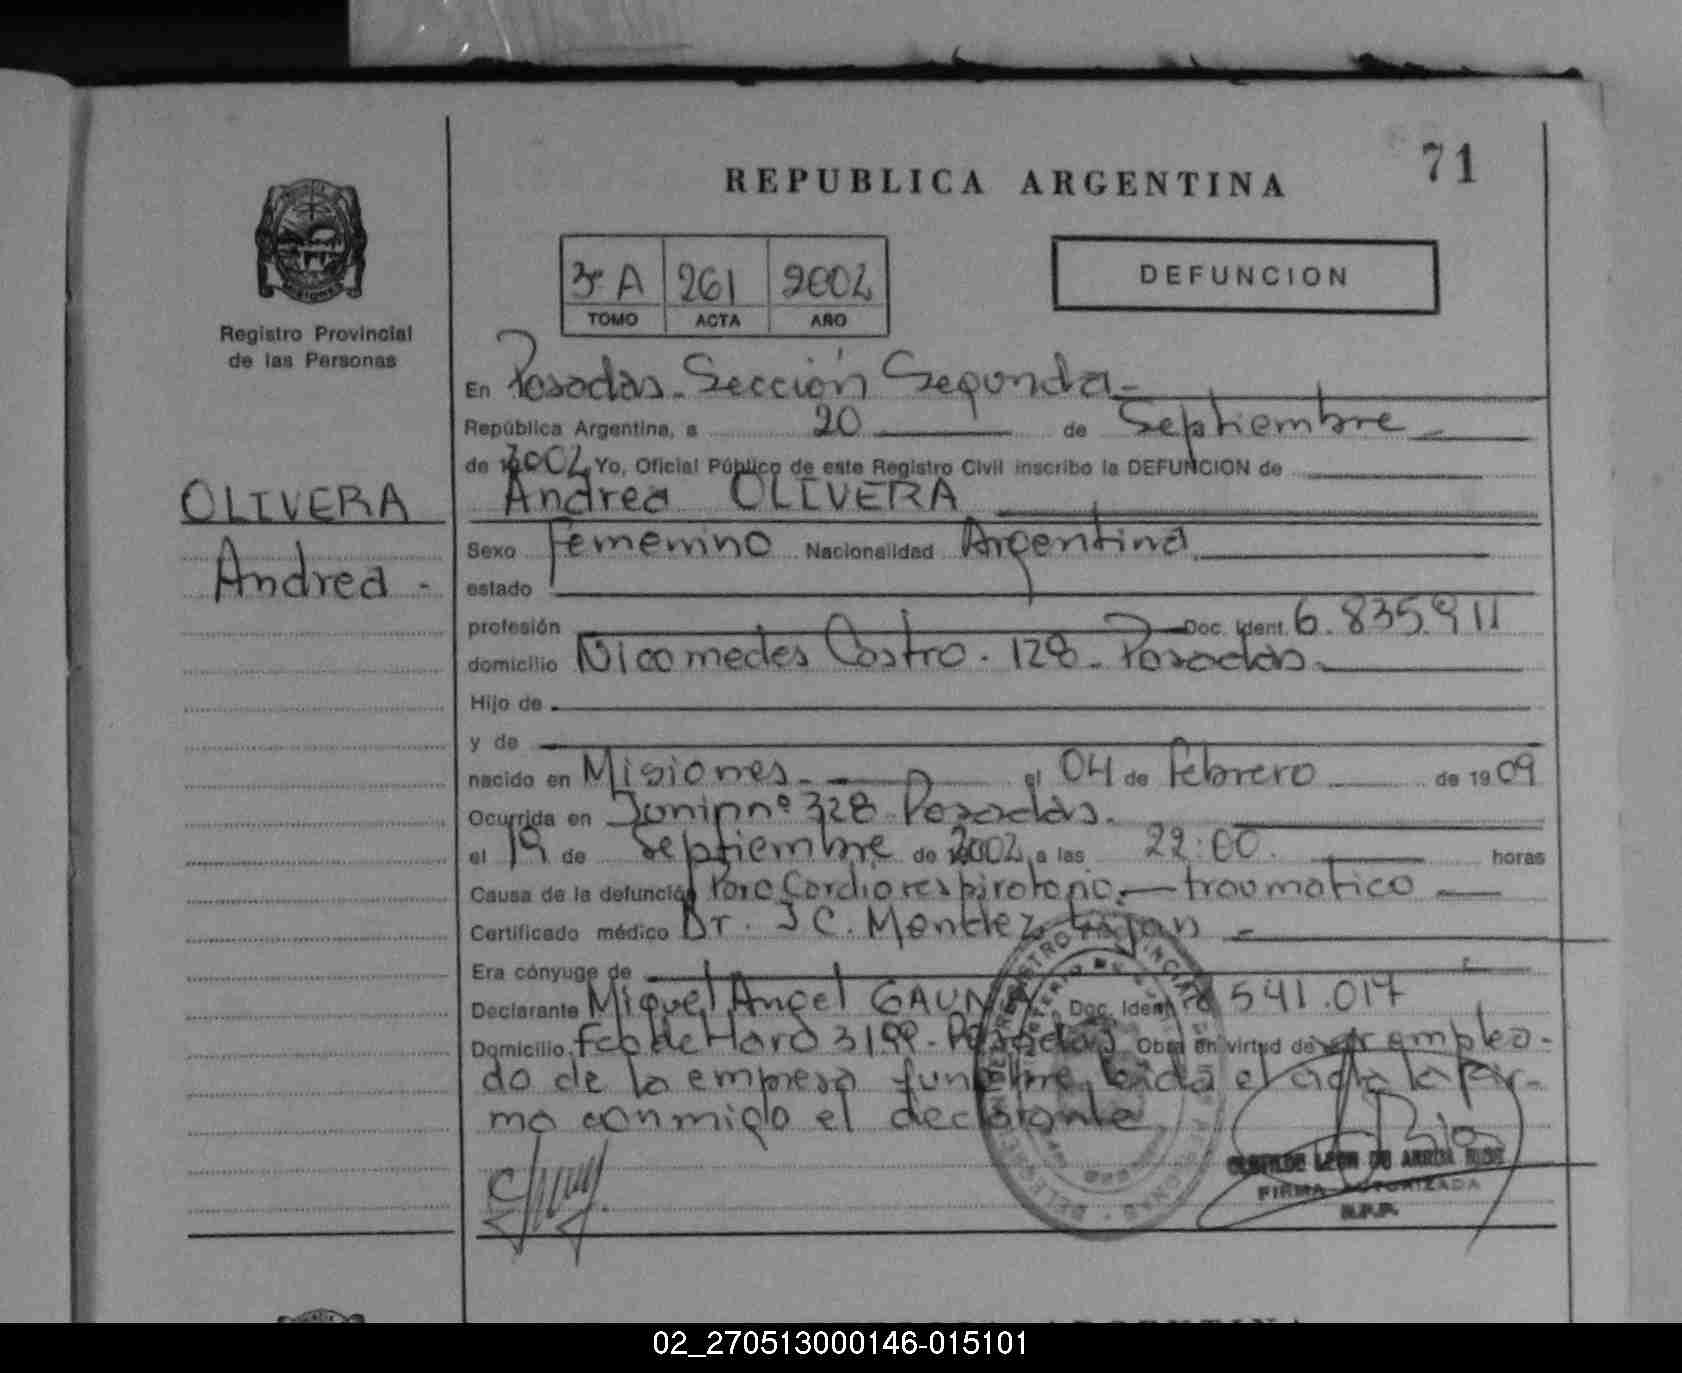 71
REPUBLICA ARGENTINA
3º A 261 2002
TOMO ACTA AÑO
DEFUNCION
Registro Provincial
de las Personas
En Posadas - Sección Segunda -
República Argentina, a 20 de Septiembre
de 2002 Yo, Oficial Público de este Registro Civil inscribo la DEFUNCION de
OLIVERA
Andrea OLIVERA
Andrea -
Sexo Femenino Nacionalidad Argentina
estado
profesión Doc. Ident. 6.835.911
domicilio Nicomedes Castro - 128 - Posadas
Hijo de
y de
nacido en Misiones - el 04 de Febrero de 1909
Ocurrida en Junin nº 328 Posadas.
el 19 de Septiembre de 2002 a las 22:00. horas
Causa de la defunción Paro Cardiorespiratorio - traumatico
Certificado médico Dr. J C. Mendez
Era cónyuge de
Declarante Miguel Angel GAUNA Doc. Ident. 541.017
Domicilio Fco de Haro 3199 - Posadas Obra en virtud de ser emplea-
do de la empresa funebre, leida el acta la fir-
ma conmigo el declarante
FIRMA AUTORIZADA
R.P.P.
02_270513000146-015101